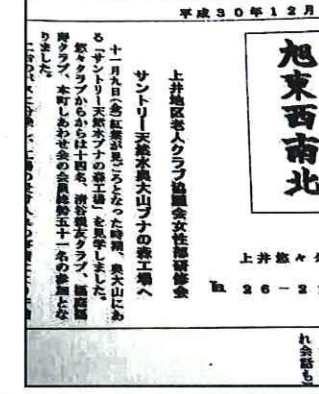 平成30年12月
旭東西南北
上井悠々
℡ 26-2
上井地区老人クラブ協議会女性部研修会
サントリー天然水奥大山ブナの森工場へ
十一月九日(金)紅葉が見ごろとなった時期、奥大山にあ
る「サントリー天然水ブナの森工場」を見学しました。
悠々クラブからは十四名、
クラブ、本町しあわせ会の会員総勢五十一名の参加とな
りました。
れ会話も